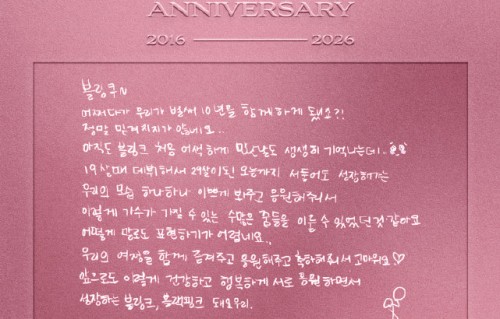 ANNIVERSARY
2016 2026
블링쿠~
어쩌다가 우리가 벌써 10년을 함께하게 됐죠?!
정말 믿겨지지가 않네요..
아직도 블링크 처음 어색하게 만난날도 생생히 기억나는데..
19살때 데뷔해서 29살이된 오늘까지 서툴어도 성장해가는
우리의 모습 하나하나 이쁘게 봐주고 응원해줘서
이렇게 가수가 가질 수 있는 수많은 꿈들을 이룰 수 있었던것 같아요
어떻게 말로도 표현하기가 어렵네요..
우리의 여정을 함께 즐겨주고 응원해주고 축하해줘서 고마워요♡
앞으로도 이렇게 건강하고 행복하게 서로 응원하면서
성장하는 블링크, 블랙핑크 돼요우리.